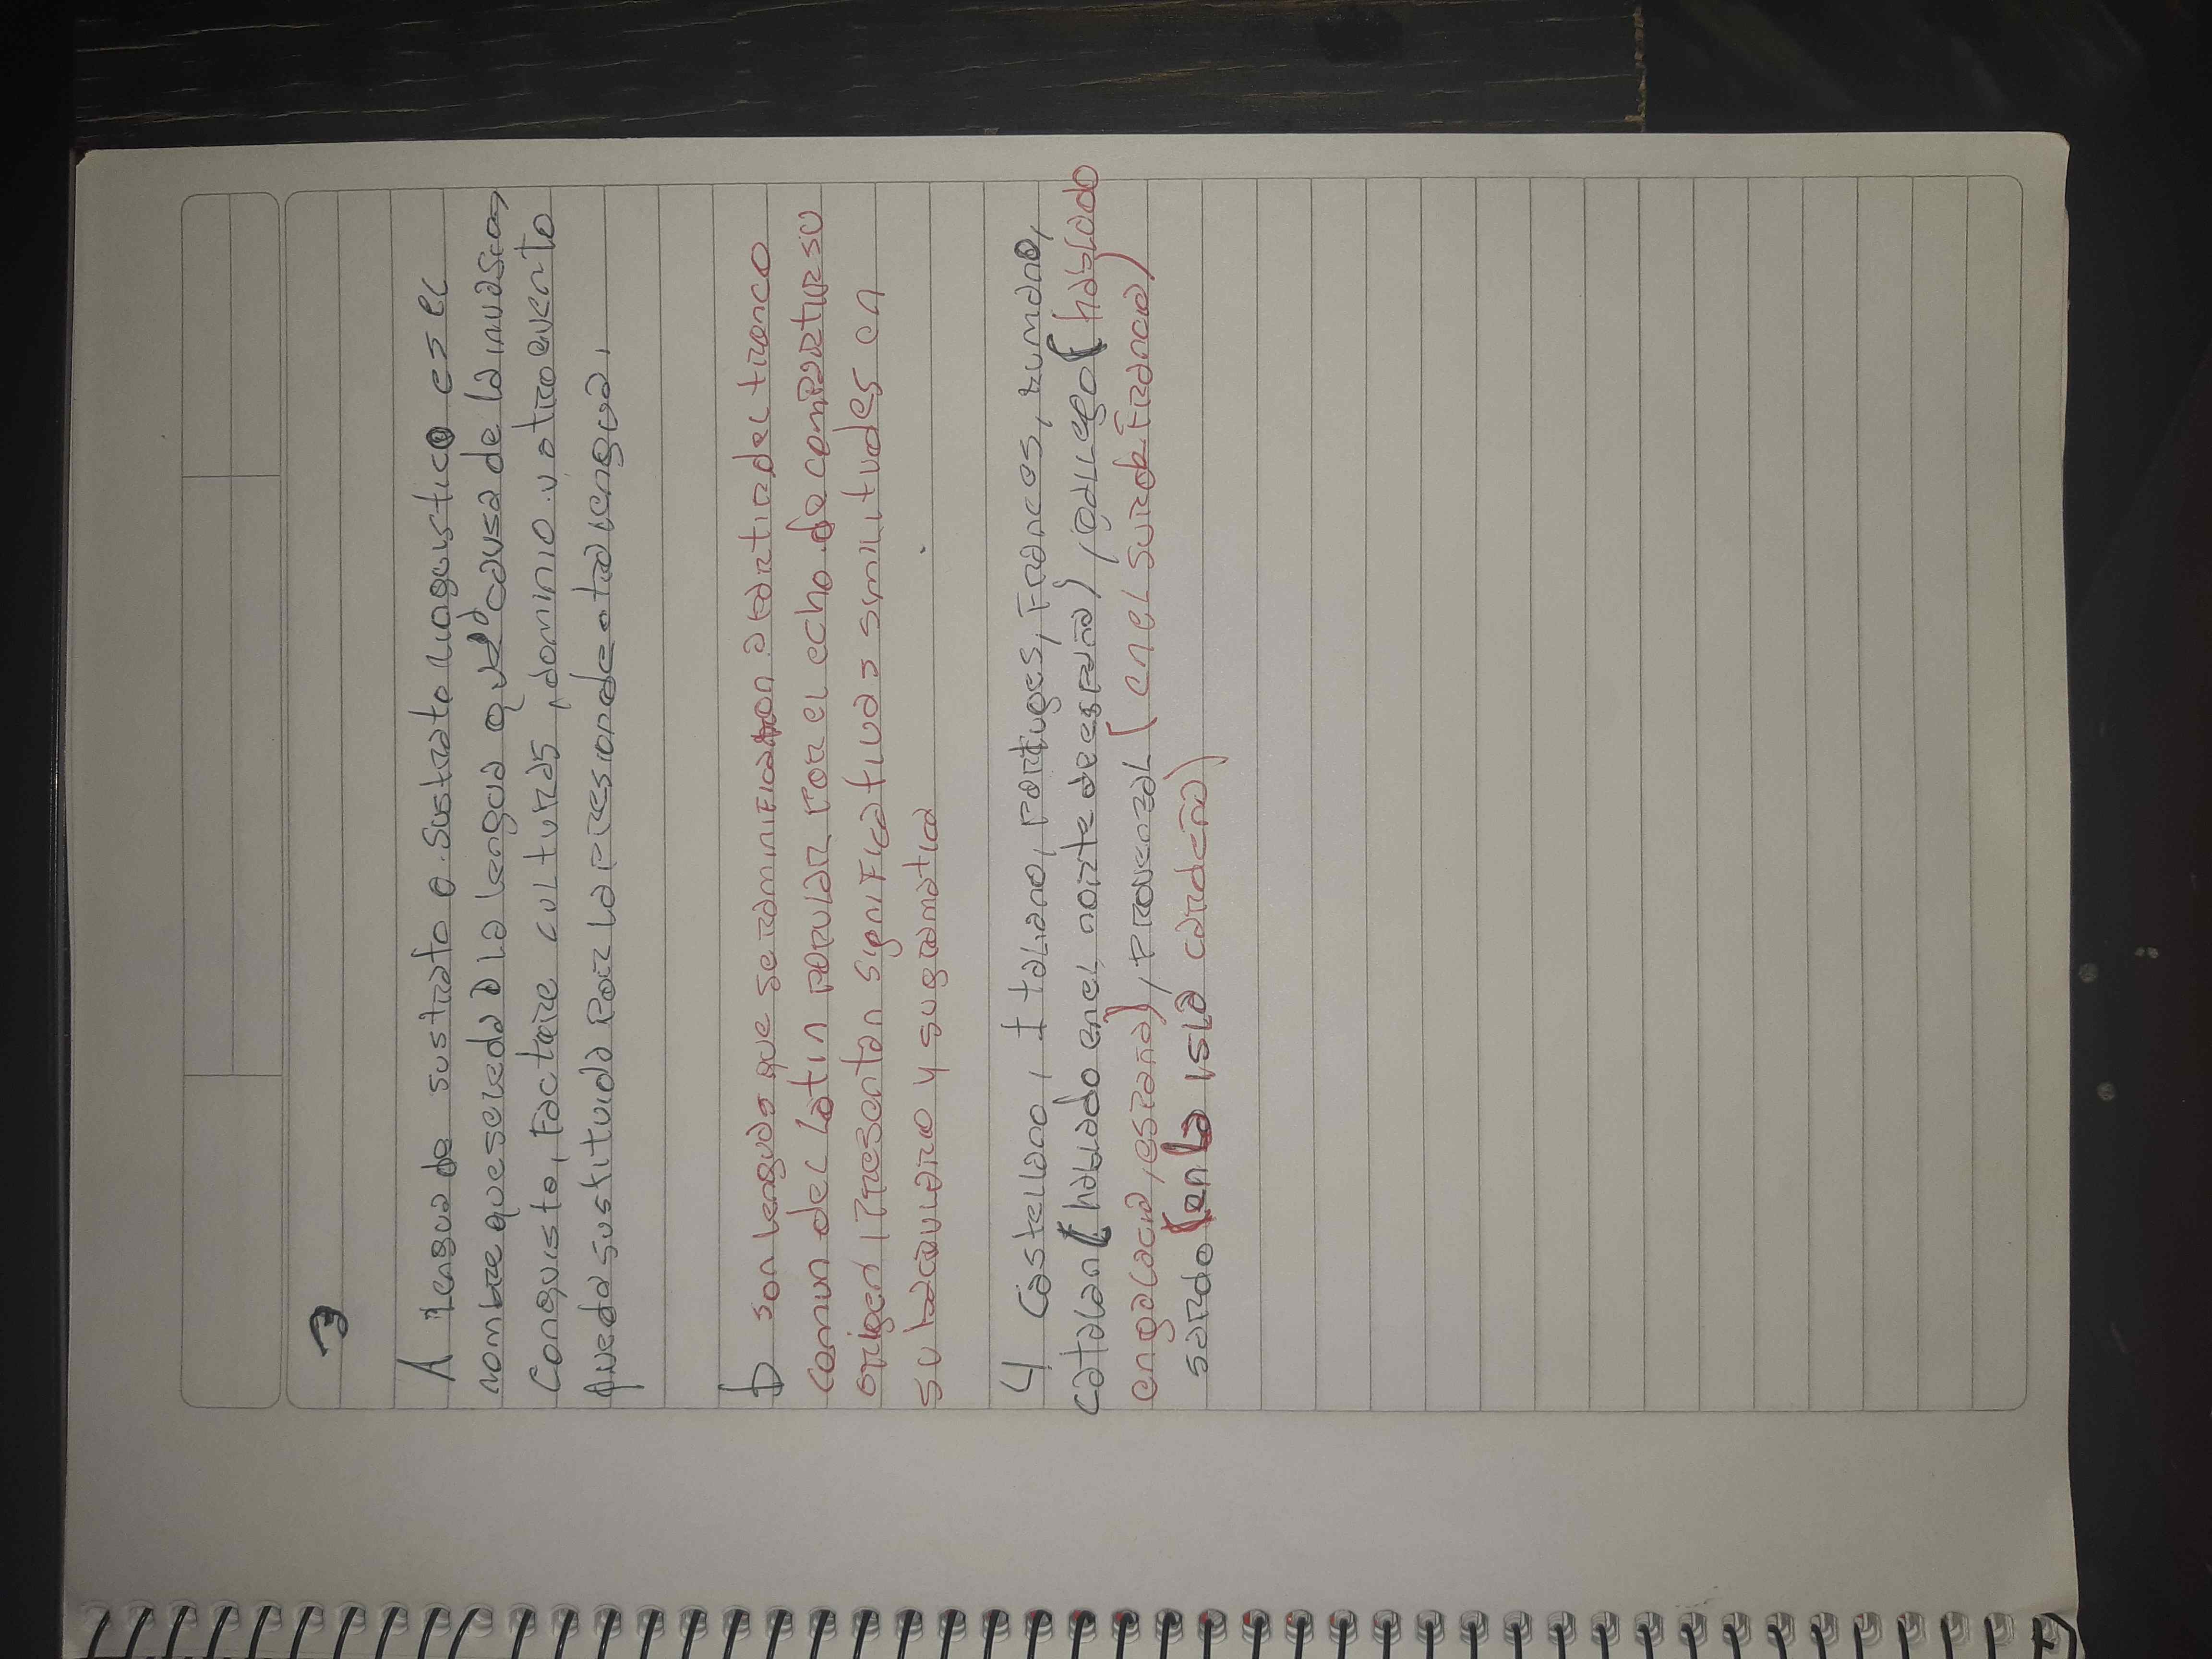 3
A lengua de sustrato o sustrato lingüistico es el
nombre que se le da a la lengua que a causa de la invasion,
Conquista, Factore culturas, dominio u otro evento
queda sustituida Por la presion de otra lengua.
b son lenguas que se raminificaron a partir del tronco
comun del Latin popular Por el echo de compartir su
origen, Presentan significativas similitudes en
su bacavulario y su gramatica
4 Castellano, Italiano, portuges, Frances, rumano,
catalan (hablado en el norte de españa), gallego (hablado
en galacia, españa), Provenzal (en el sur de Francia)
sardo (en la isla cardeña)